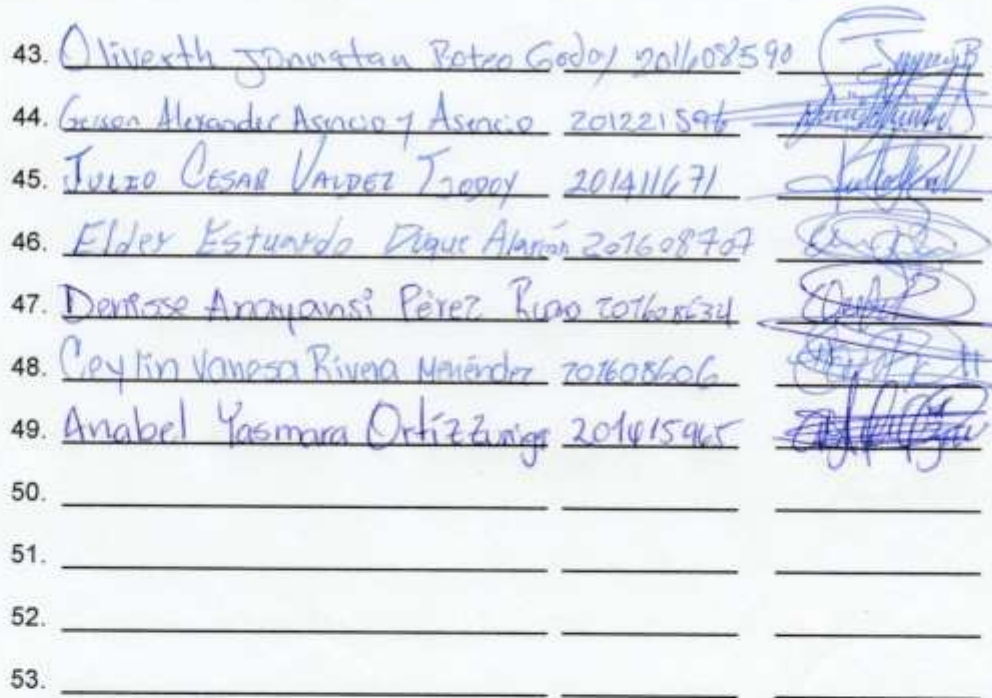 43. Oliverth Jonnatan Boteo Godoy 201608590
44. Geison Alexander Asencio y Asencio 201221596
45. JULIO CESAR VALDEZ GODOY 201411671
46. Elder Estuardo Duque Alarcón 201608707
47. Denisse Anayansi Pérez 201608634
48. Ceylin Vanesa Rivera Menéndez 201608606
49. Anabel Yasmara Ortíz Zuniga 201415965
50.
51.
52.
53.